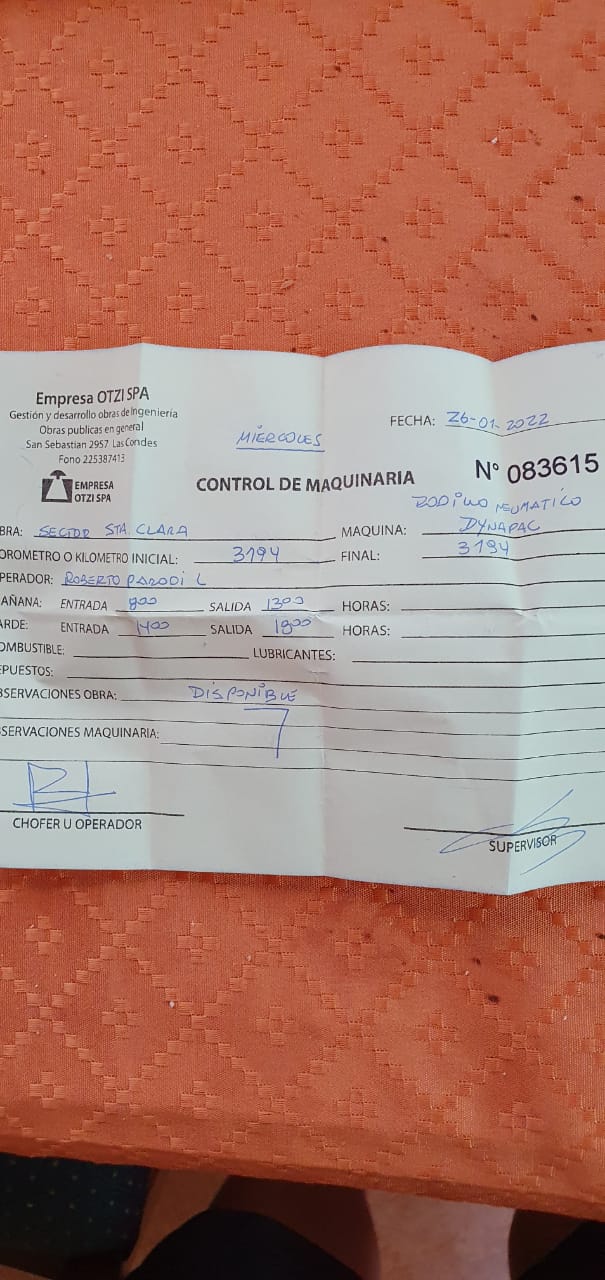 Empresa OTZI SPA
Gestión y desarrollo obras de Ingenieria
Obras publicas en general
San Sebastian 2957 Las Condes
Fono 225387413
EMPRESA
OTZI SPA
MIÉRCOLES
FECHA: 26-01-2022
CONTROL DE MAQUINARIA
Nº 083615
BRA: SECTOR STA. CLARA
RODILLO NEUMATICO
MAQUINA: DYNAPAC
OROMETRO O KILOMETRO INICIAL: 3194 FINAL: 3194
PERADOR: ROBERTO PARODI L
AÑANA: ENTRADA 800 SALIDA 1300 HORAS:
ARDE: ENTRADA 1400 SALIDA 1800 HORAS:
OMBUSTIBLE: LUBRICANTES:
EPUESTOS:
BSERVACIONES OBRA: DISPONIBLE
SERVACIONES MAQUINARIA:
CHOFER U OPERADOR
SUPERVISOR